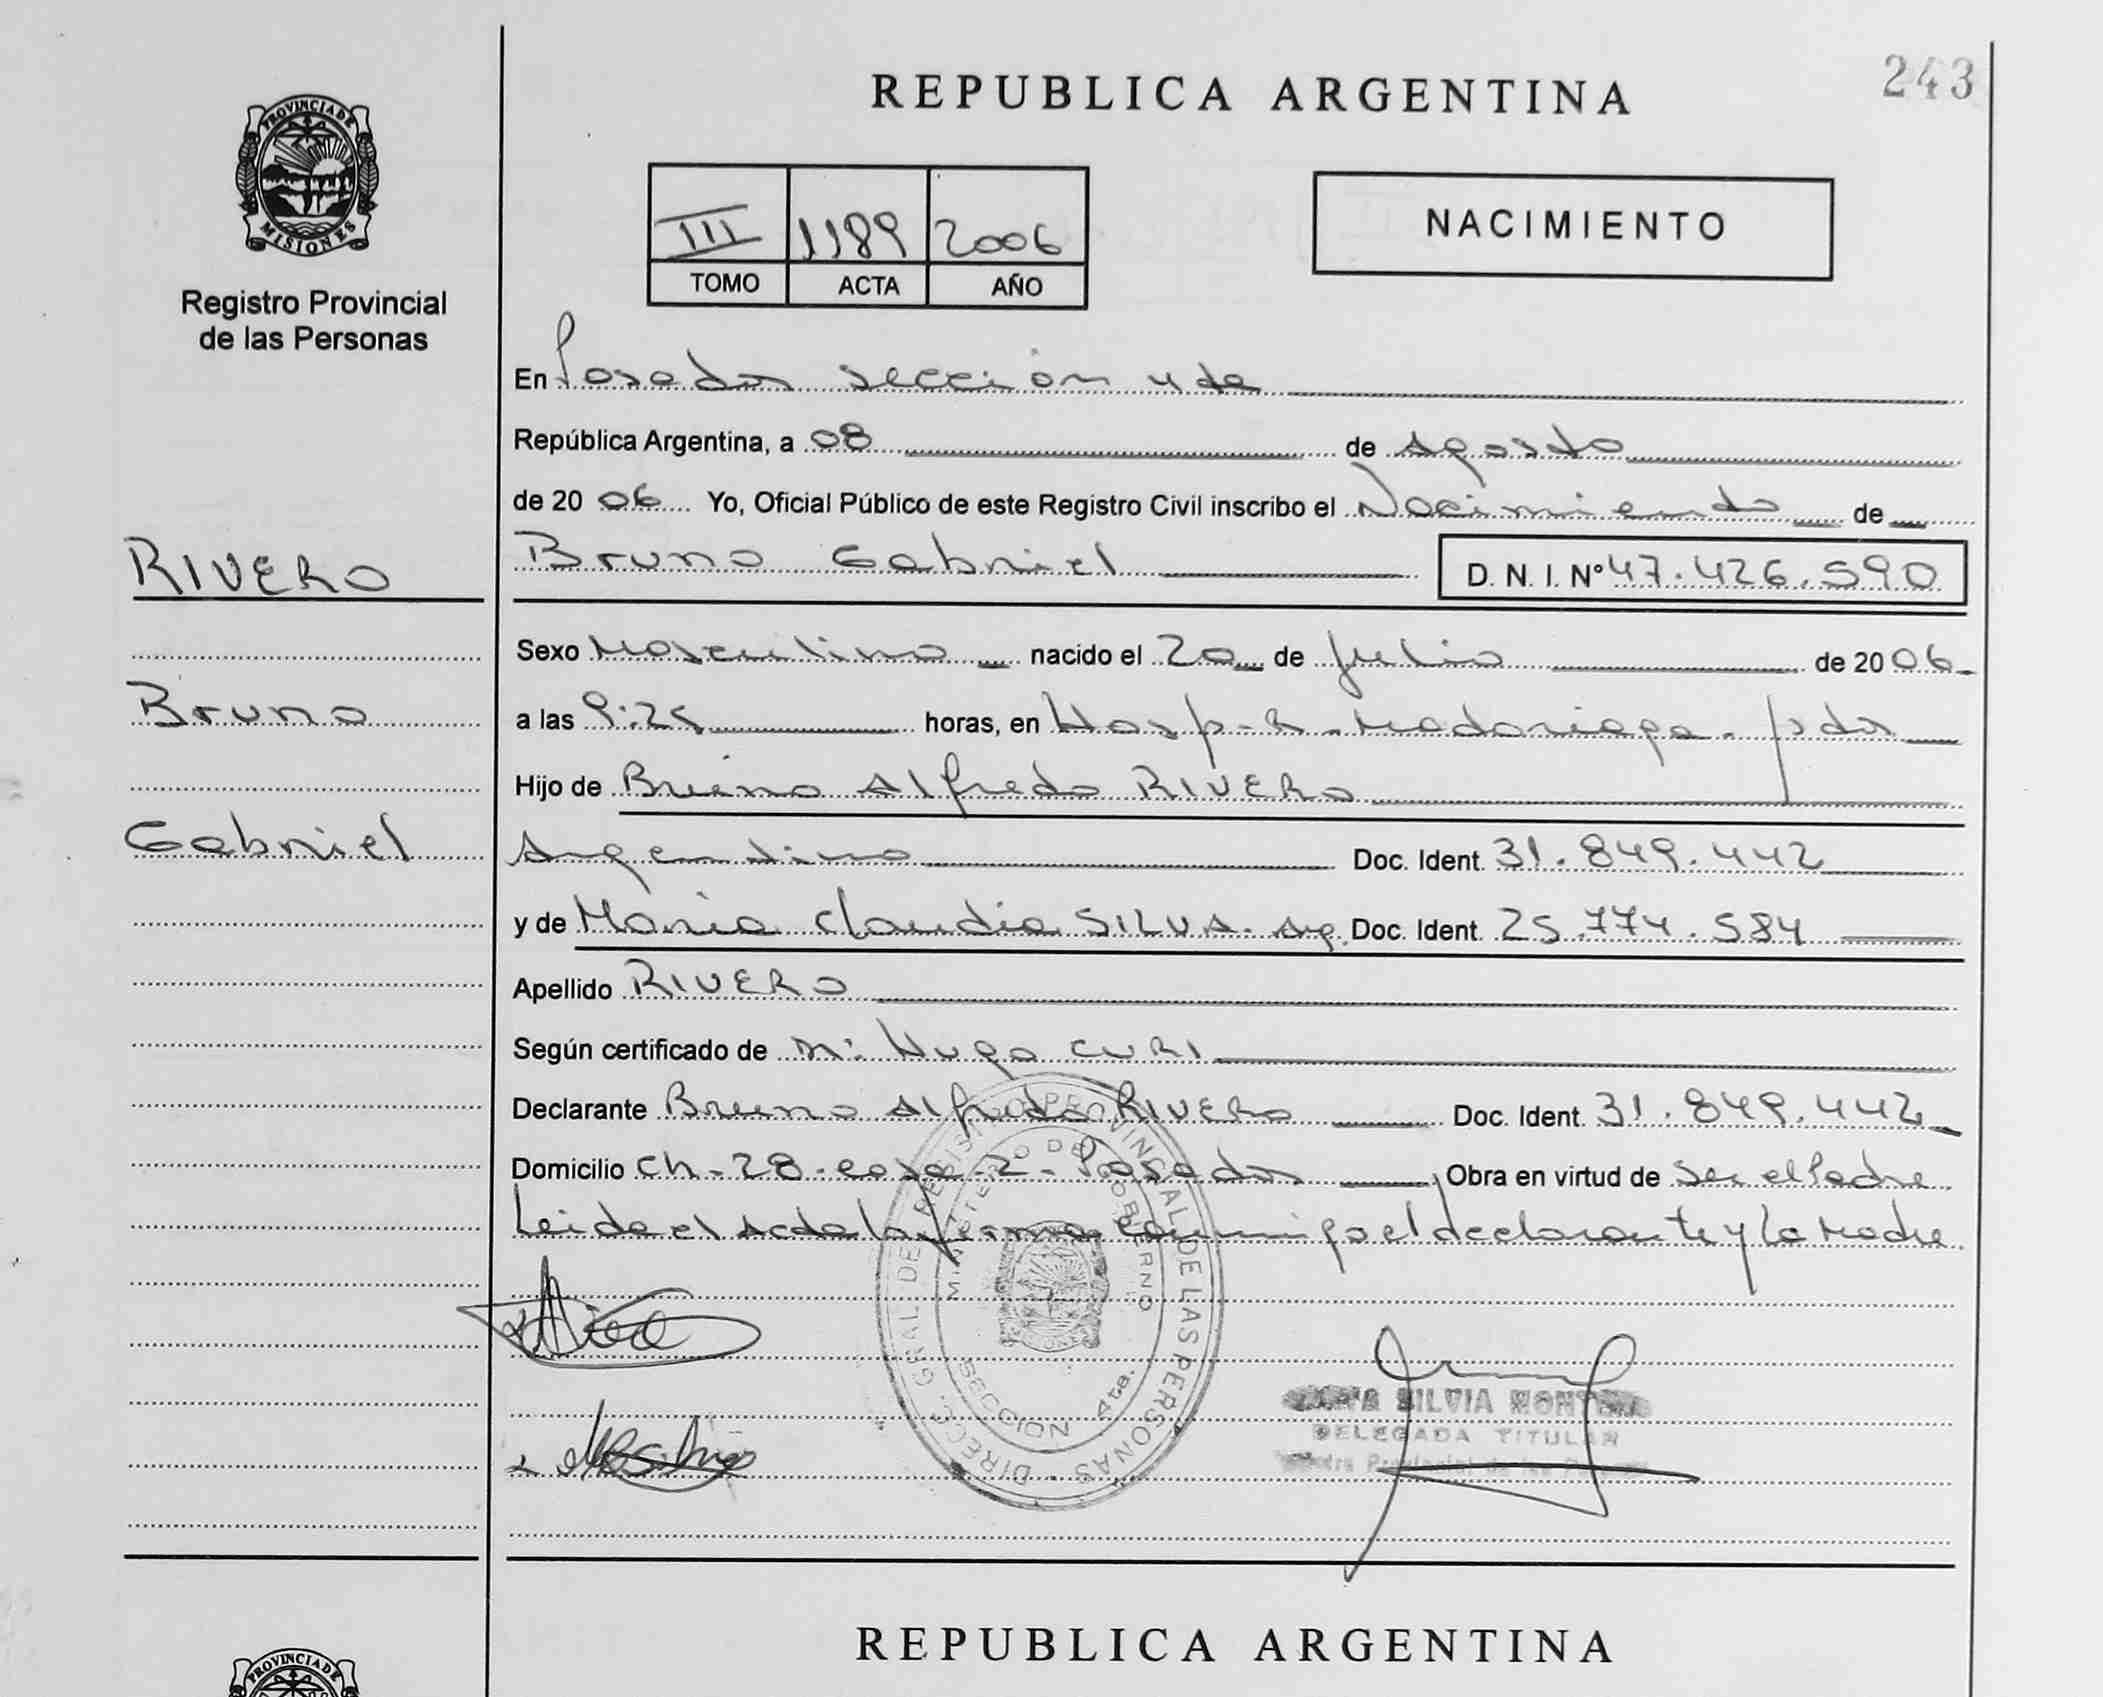 243
REPUBLICA ARGENTINA
PROVINCIA DE
MISIONES
Registro Provincial
de las Personas
III 1189 2006
TOMO ACTA AÑO
NACIMIENTO
En Posadas sección 4ta
República Argentina, a 08 de Agosto
de 20 06 Yo, Oficial Público de este Registro Civil inscribo el Nacimiento de
RIVERO
Bruno Gabriel D. N. I. Nº 47.426.590
Sexo Masculino nacido el 20 de Julio de 20 06
Bruno
a las 9:25 horas, en Hosp-R-Madariaga-pdas
Hijo de Bruno Alfredo RIVERO
Gabriel
Argentino Doc. Ident. 31.849.442
y de Maria Claudia SILVA. Arg. Doc. Ident. 25.774.584
Apellido RIVERO
Según certificado de Hugo CURI
Declarante Bruno Alfredo RIVERO Doc. Ident. 31.849.442
Domicilio Ch-28-casa-2-Posadas Obra en virtud de Ser el Padre
Leida el Acta la firma conmigo el declarante y la Madre
DIREC. GERAL DE REGISTRO PROVINCIAL DE LAS PERSONAS
MINISTERIO DE GOBIERNO
SECCION 4ta.
SILVIA
DELEGADA TITULAR
Provincial de las
REPUBLICA ARGENTINA
PROVINCIA DE